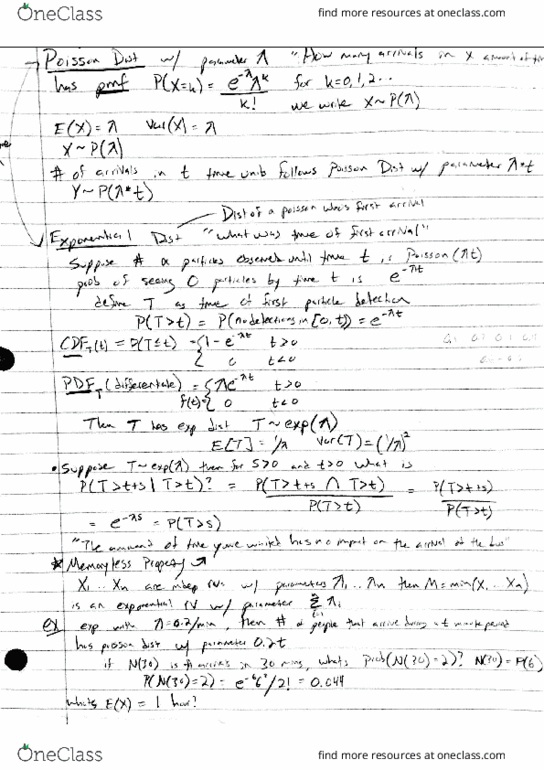 OneClass
find more resources at oneclass.com
Poisson Dist w/ parameter λ "How many arrivals in x amount of time
has pmf P(X=k) = e^-λ λ^k / k! for k=0,1,2..
we write X~P(λ)
E(X)=λ Var(X)=λ
X~P(λ)
# of arrivals in t time units follows Poisson Dist w/ parameter λ*t
Y~P(λ*t)
Dist of a poisson first arrival
Exponential Dist "what was time of first arrival"
Suppose # α particles observed until time t is Poisson(λt)
prob of seeing 0 particles by time t is e^-λt
define T as time of first particle detection
P(T>t) = P(no detections in [0,t)) = e^-λt
CDF_T(t) = P(T≤t) = {1-e^-λt t>0
{ 0 t<0
PDF_T (differentiate) = {λe^-λt t>0
f(t)={ 0 t<0
Then T has exp dist T~exp(λ)
E[T]=1/λ Var(T)=(1/λ)^2
•Suppose T~exp(λ) then for S>0 and t>0 what is
P(T>t+s | T>t)? = P(T>t+s ∩ T>t) / P(T>t) = P(T>t+s) / P(T>t)
= e^-λs = P(T>s)
"The amount of time you've waited has no impact on the arrival of the bus"
* Memoryless Property
X1...Xn are indep RVs w/ parameters λ1...λn then M=min(X1...Xn)
is an exponential RV w/ parameter Σ λi
ex exp with λ=0.2/min, then # of people that arrive during a t minute period
has poisson dist w/ parameter 0.2t
if N(30) is # arrivals in 30 mins, whats prob(N(30)=2)? N(30)=P(6)
P(N(30)=2) = e^-6 6^2/2! = 0.044
whats E(X) = 1 hour?
OneClass
find more resources at oneclass.com